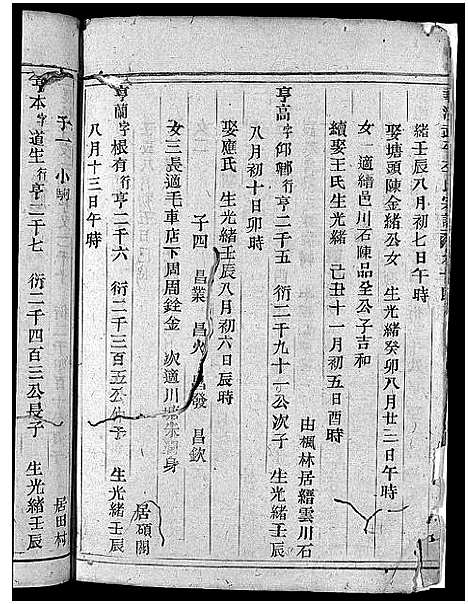 緒壬辰八月初七日午時
娶塘頭陳金緒公女 生光緒癸卯八月廿二日午時
女一適緒邑川石陳品全公子吉和
續娶王氏生光緒 己丑十一月初五日酉時
由楓林居縉雲川石
亨高字仰鄰行亨二千五 衍二千九十一公次子 生光緒壬辰
八月初十日卯時
娶應氏 生光緒壬辰八月初六日辰時
子四 昌業 昌火 昌發 昌欽
女三長適毛車店下周周銓金 次適川 身
居碩閣
亨蘭字根有行亨二千六 衍二千三百五公 生光緒壬辰
八月十三日午時
子一 小
居田村
亨本字道生行亨二千七 衍二千四百三公長子 生光緒壬辰